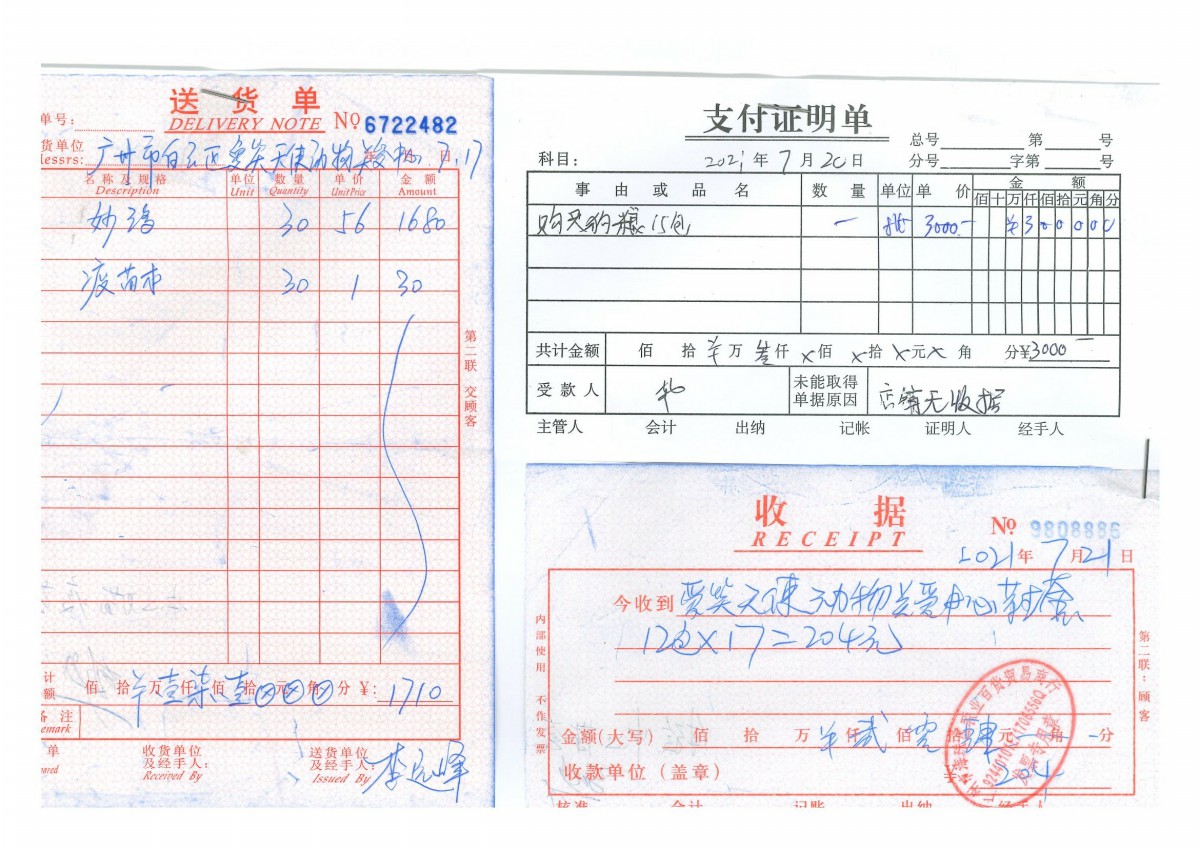 送货单
单号:
DELIVERY NOTE № 6722482
货单位 广州市白云区爱笑天使动物关爱中心 7.17
lessrs:
名称及规格 单位 数量 单价 金额
Description Unit Quantity UnitPrice Amount
妙 30 56 1680
疫苗本 30 1 30
第二联 交顾客
计 佰 拾 万 仟 佰 拾 元 角 分 ¥: 1710
额 ¥ 壹 柒 壹 0 0 0
备注
emark
单 收货单位 送货单位
及经手人: 及经手人: 李
ared Received By Issued By
支付证明单
总号 第 号
科目: 2021年7月20日 分号 字第 号
事由或品名 数量 单位 单价 金额
佰 十 万 仟 佰 拾 元 角 分
购买狗粮15包 一 批 3000.- ¥ 3 0 0 0 0 0
共计金额 佰 拾 ¥ 万 叁 仟 x 佰 x 拾 x 元 x 角 分 ¥3000
受款人 未能取得单据原因 店铺无收据
主管人 会计 出纳 记帐 证明人 经手人
收据
RECEIPT № 9808886
2021年7月21日
今收到 爱笑天使动物关爱中心
12包×17=204元
内部使用 不作发票
第二联:顾客
金额(大写) 佰 拾 万 ¥ 仟 贰 佰 零 拾 肆 元 - 角 - 分
收款单位(盖章) ¥ 204
核准 会计 记账 出纳 经手人